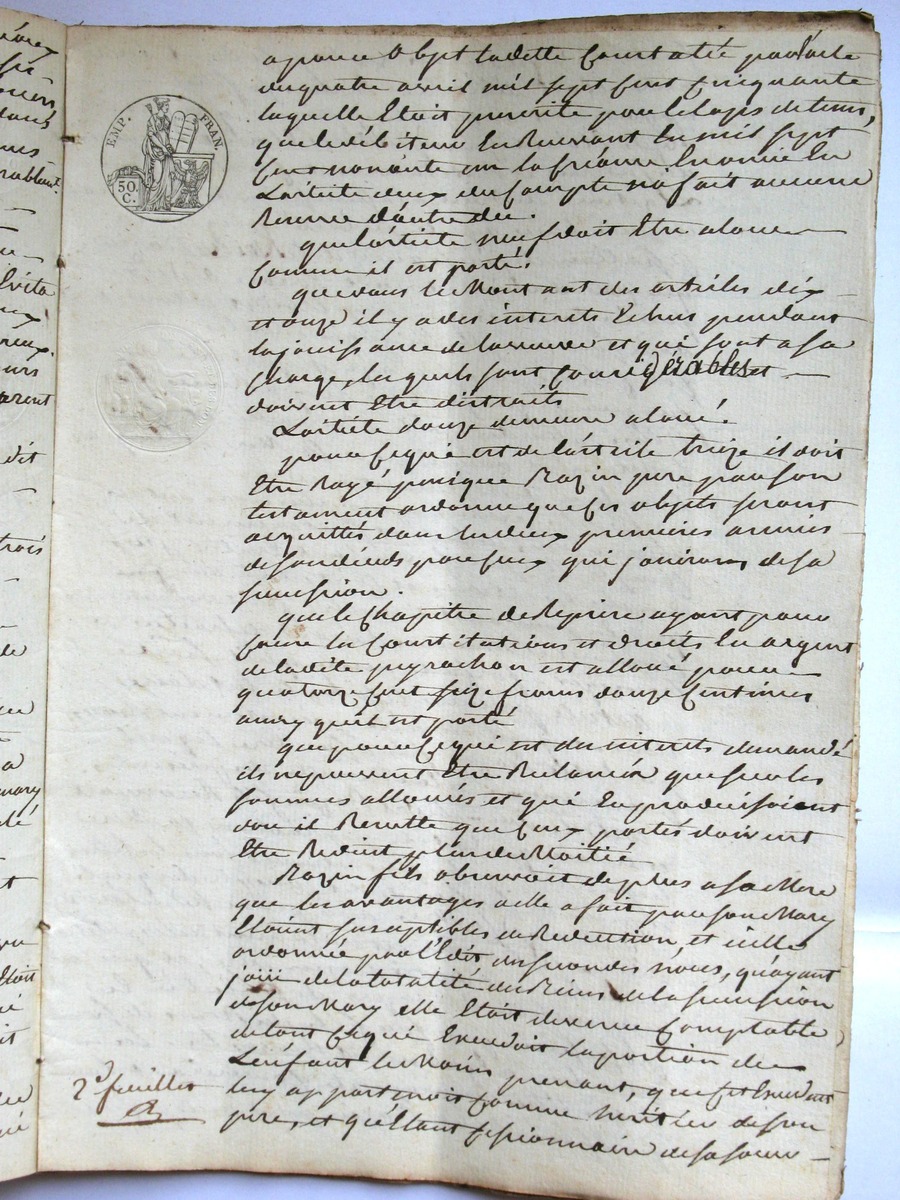 EMP. FRAN.
50.
C.
a pour objet la dette Constatée par l'acte
du quatre avril mil sept cent cinquante
laquelle Etoit prescrite par le laps de tems,
que le débiteur En en mil sept
cent nonante un la En En
L'article deux du Compte n'a fait aucune
Reserve d'autre du.
que l'article neuf doit Etre aloué
Comme il est porté.
que dans le Montant des articles dix
et onze il y a des interets Echus pendant
la jouissance de la veuve et qui sont a sa
Charge, lesquels sont considérables et
doivent Etre distraits
L'article douze demeure aloué.
pour ce qui est de l'article treize il doit
Etre Rayé puisque Razin pere par son
testament ordonne que ces objets seront
acquittés dans les deux premieres années
de son décés par ceux qui jouiront de sa
succession.
que le Chapitre de Reprise ayant pour
cause les Constitutions et droits En argent
de ladite peyrachon est alloué pour
quatorze cent seize francs douze Centimes
ainsy qu'il est porté
que pour ce qui est des interets demandé
ils ne peuvent Etre Reclamés que sur les
sommes allouées et qui En produisoient
d'ou il Resulte que ceux portés doivent
Etre Reduit plus de Moitié
Razin fils observoit de plus a sa Mere
que les avantages a elle a fait par son Mary
Etoient susceptibles de Reduction, et celle
ordonnée par l'Edit des secondes nôces, qu'ayant
joüi de la totalité des Biens de la succession
de son Mary elle Etoit devenue Comptable
de tout ce qui Excedoit la portion de
L'enfant le Moins prenant, que cet Excedent
luy appartenoit comme heritier de son
pere, et qu'Etant cessionnaire de sa soeur
2e feuillet